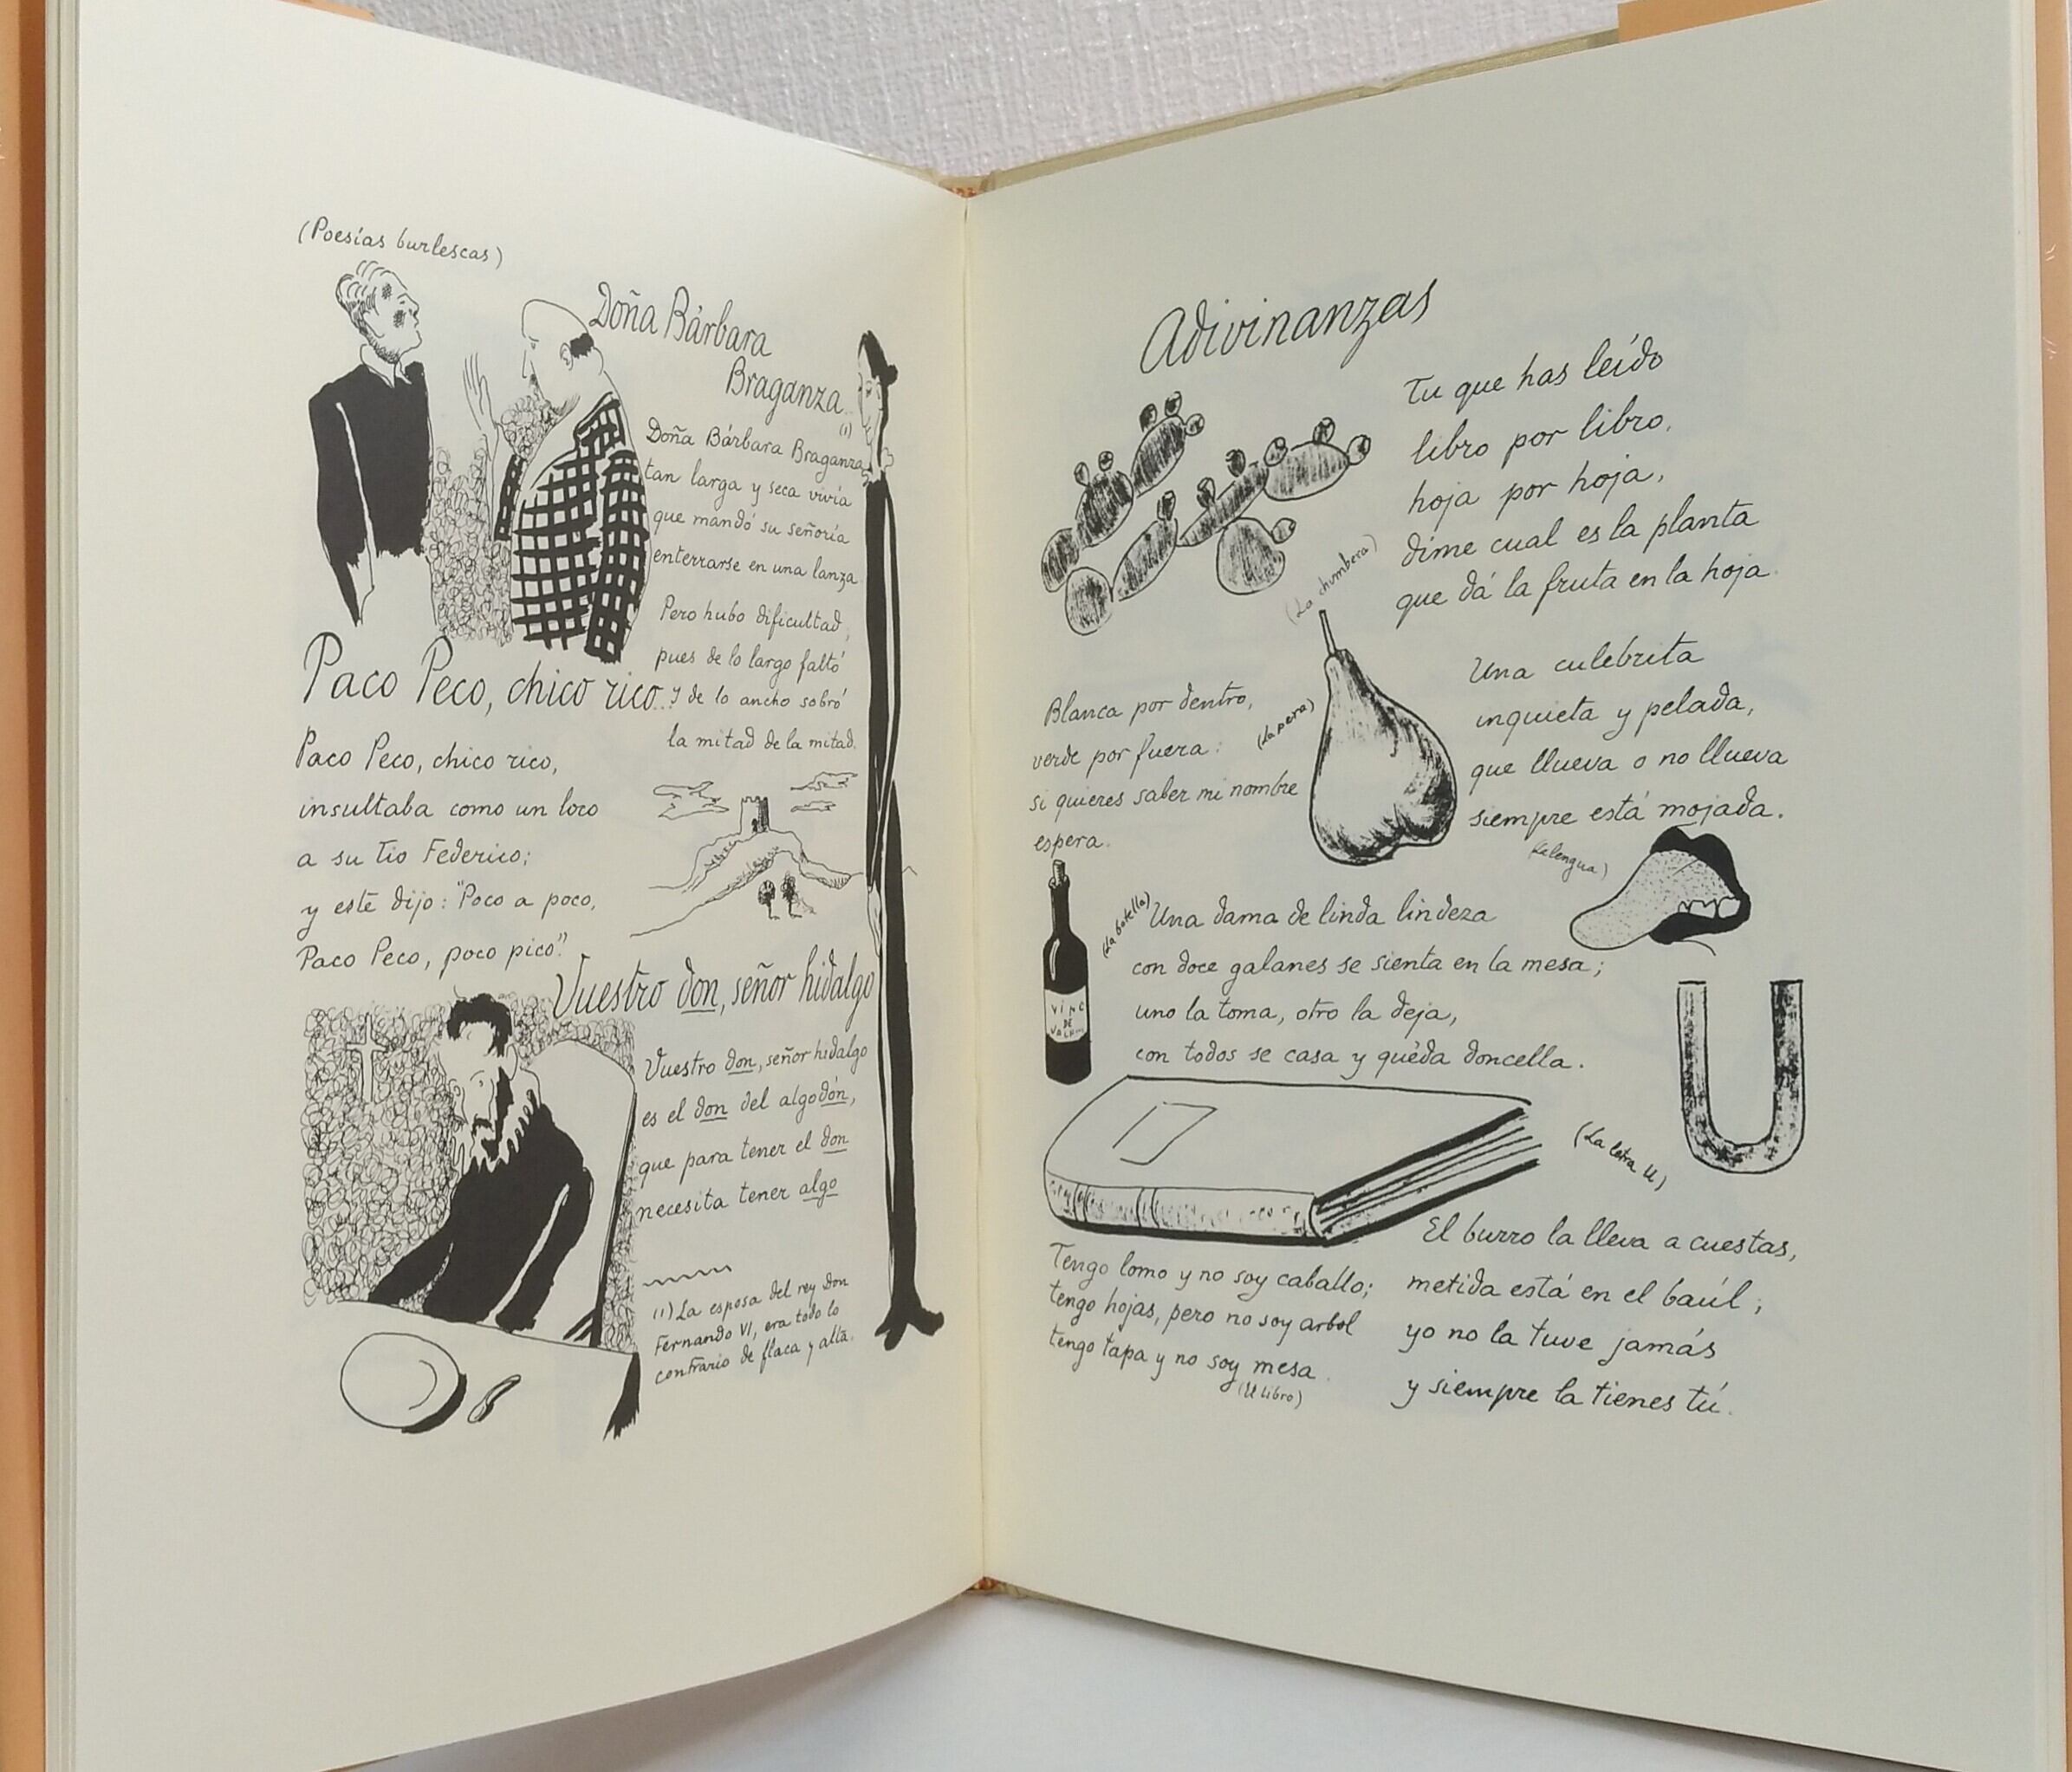 (Poesías burlescas)
Doña Bárbara
Braganza
(1)
Doña Bárbara Braganza
tan larga y seca vivía
que mandó su señoría
enterrarse en una lanza
Pero hubo dificultad,
pues de lo largo faltó
y de lo ancho sobró
la mitad de la mitad.
Paco Peco, chico rico...
Paco Peco, chico rico,
insultaba como un loco
a su tio Federico;
y este dijo: "Poco a poco,
Paco Peco, poco pico".
Vuestro don, señor hidalgo
Vuestro don, señor hidalgo
es el don del algodón,
que para tener el don
necesita tener algo
(1) La esposa del rey don
Fernando VI, era todo lo
contrario de flaca y alta.
Adivinanzas
Tu que has leído
libro por libro,
hoja por hoja,
dime cual es la planta
que dá la fruta en la hoja.
(La chumbera)
Blanca por dentro,
verde por fuera:
si quieres saber mi nombre
espera.
(La pera)
Una culebrita
inquieta y pelada,
que llueva o no llueva
siempre está mojada.
(La lengua)
(La botella)
Una dama de linda lindeza
con doce galanes se sienta en la mesa;
uno la toma, otro la deja,
con todos se casa y quéda doncella.
VINO
DE
Tengo lomo y no soy caballo;
tengo hojas, pero no soy arbol
tengo tapa y no soy mesa.
(El libro)
(La letra U)
El burro la lleva a cuestas,
metida está en el baúl;
yo no la tuve jamás
y siempre la tienes tú.